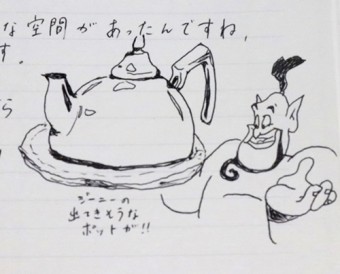 な空間があったんですね,
す。
ら
ジーニーの
出てきそうな
ポットが!!